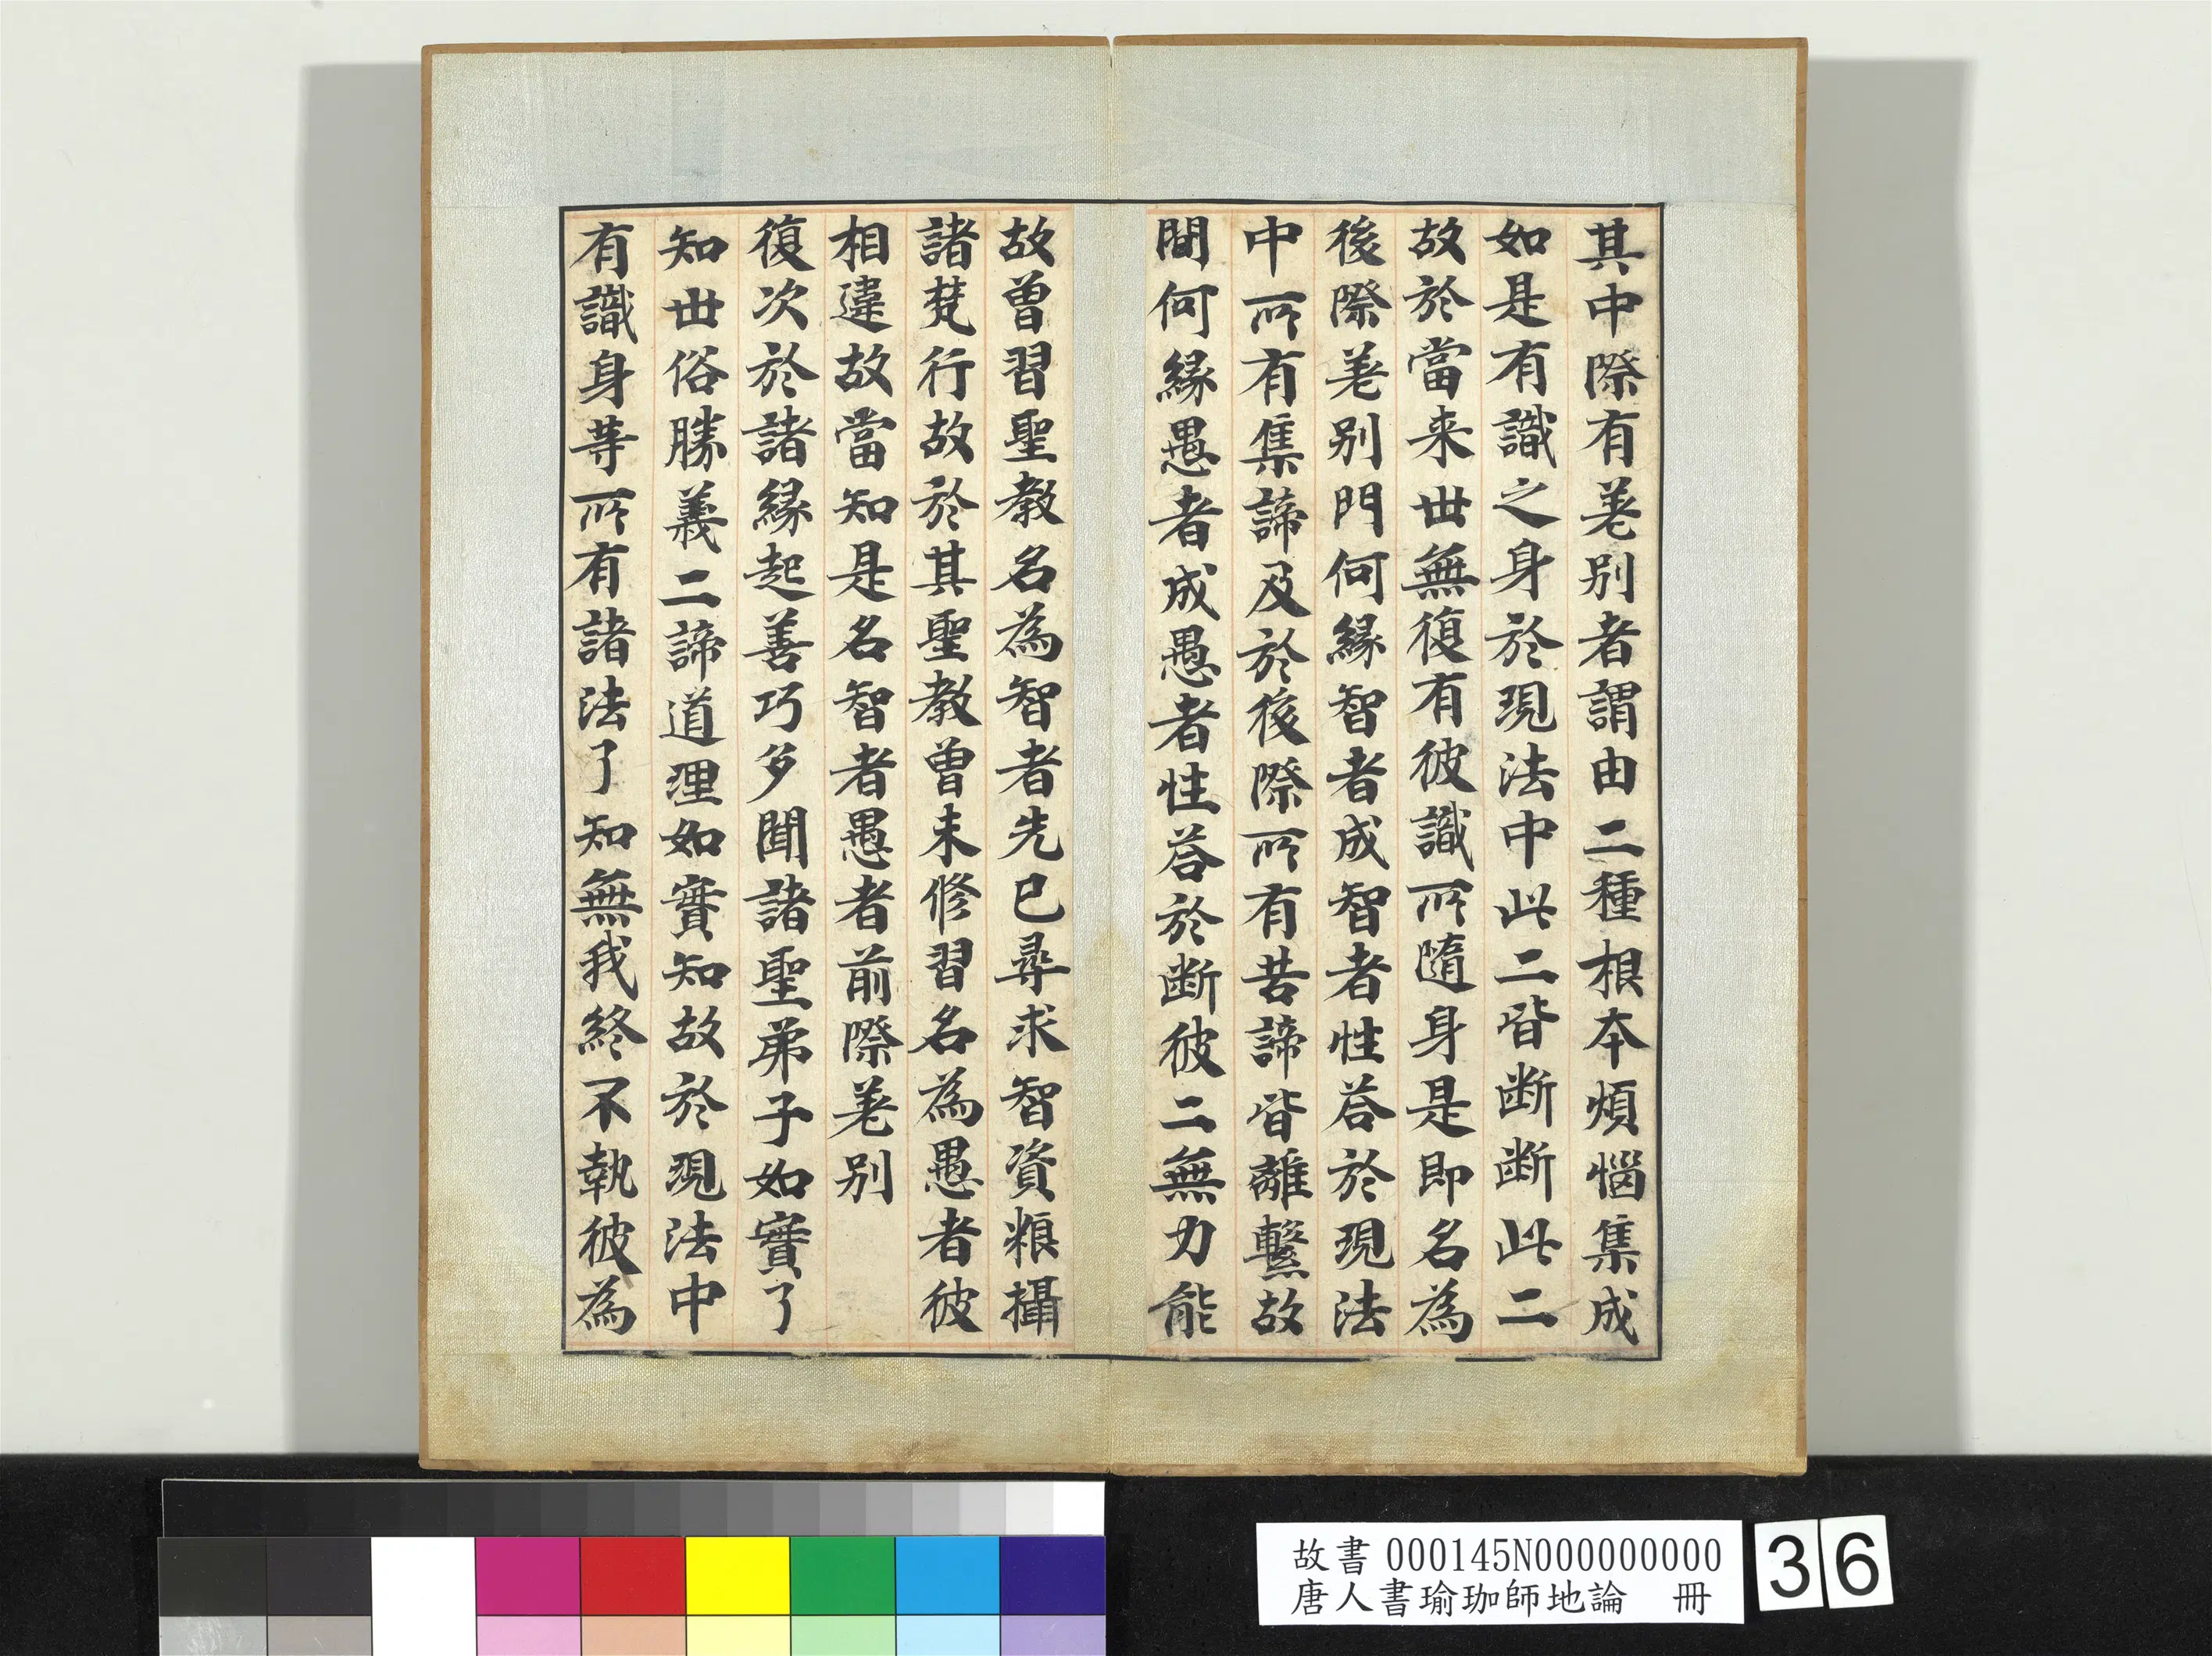 其中際有差别者謂由二種根本煩惱集成
如是有識之身於現法中此二皆断断此二
故於當来世無復有彼識所隨身是即名為
後際差别門何縁智者成智者性荅於現法
中所有集諦及於後際所有苦諦皆離繫故
問何縁愚者成愚者性荅於断彼二無力能
故曽習聖教名為智者先已尋求智資粮攝
諸梵行故於其聖教曽未修習名為愚者彼
相違故當知是名智者愚者前際差别
復次於諸縁起善巧多聞諸聖弟子如實了
知世俗勝義二諦道理如實知故於現法中
有識身等所有諸法了知無我終不執彼為
故書 000145N000000000
唐人書瑜珈師地論 冊
36